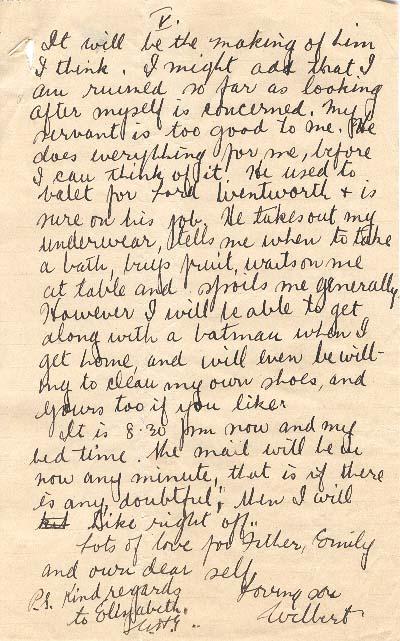 V.
It will be the making of him
I think. I might add that I
am ruined so far as looking
after myself is concerned. My
servant is too good to me. He
does everything for me, before
I can think of it. He used to
valet for Lord Wentworth & is
sure on his job. He takes out my
underwear, tells me when to take
a bath, buys fruit, waits on me
at table and spoils me generally.
However I will be able to get
along with a batman when I
get home, and will even be will-
ing to clean my own shoes, and
yours too if you like
It is 8.30 pm now and my
bed time. The mail will be in
now any minute, that is if there
is any, doubtful, then I will
right off.
Lots of love for Father, Emily
and own dear self
Loving son
Wilbert
P.S. Kind regards
to Elizabeth.